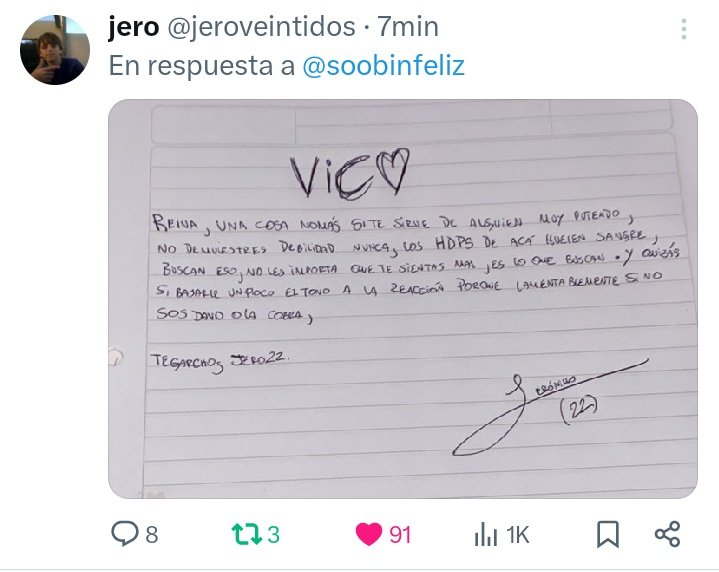 jero @jeroveintidos · 7min
En respuesta a @soobinfeliz
VIC♡
REINA, UNA COSA NOMÁS SI TE SIRVE DE ALGUIEN MUY PUTEADO,
NO DEMUESTRES DEBILIDAD NUNCA, LOS HDPS DE ACÁ HUELEN SANGRE,
BUSCAN ESO, NO LES IMPORTA QUE TE SIENTAS MAL, ES LO QUE BUSCAN. Y QUIZÁS
SI BAJARLE UN POCO EL TONO A LA REACCIÓN PORQUE LAMENTABLEMENTE SI NO
SOS DAVO O LA COBRA,
JERO22.
JERÓNIMO
(22)
8 3 91 1K